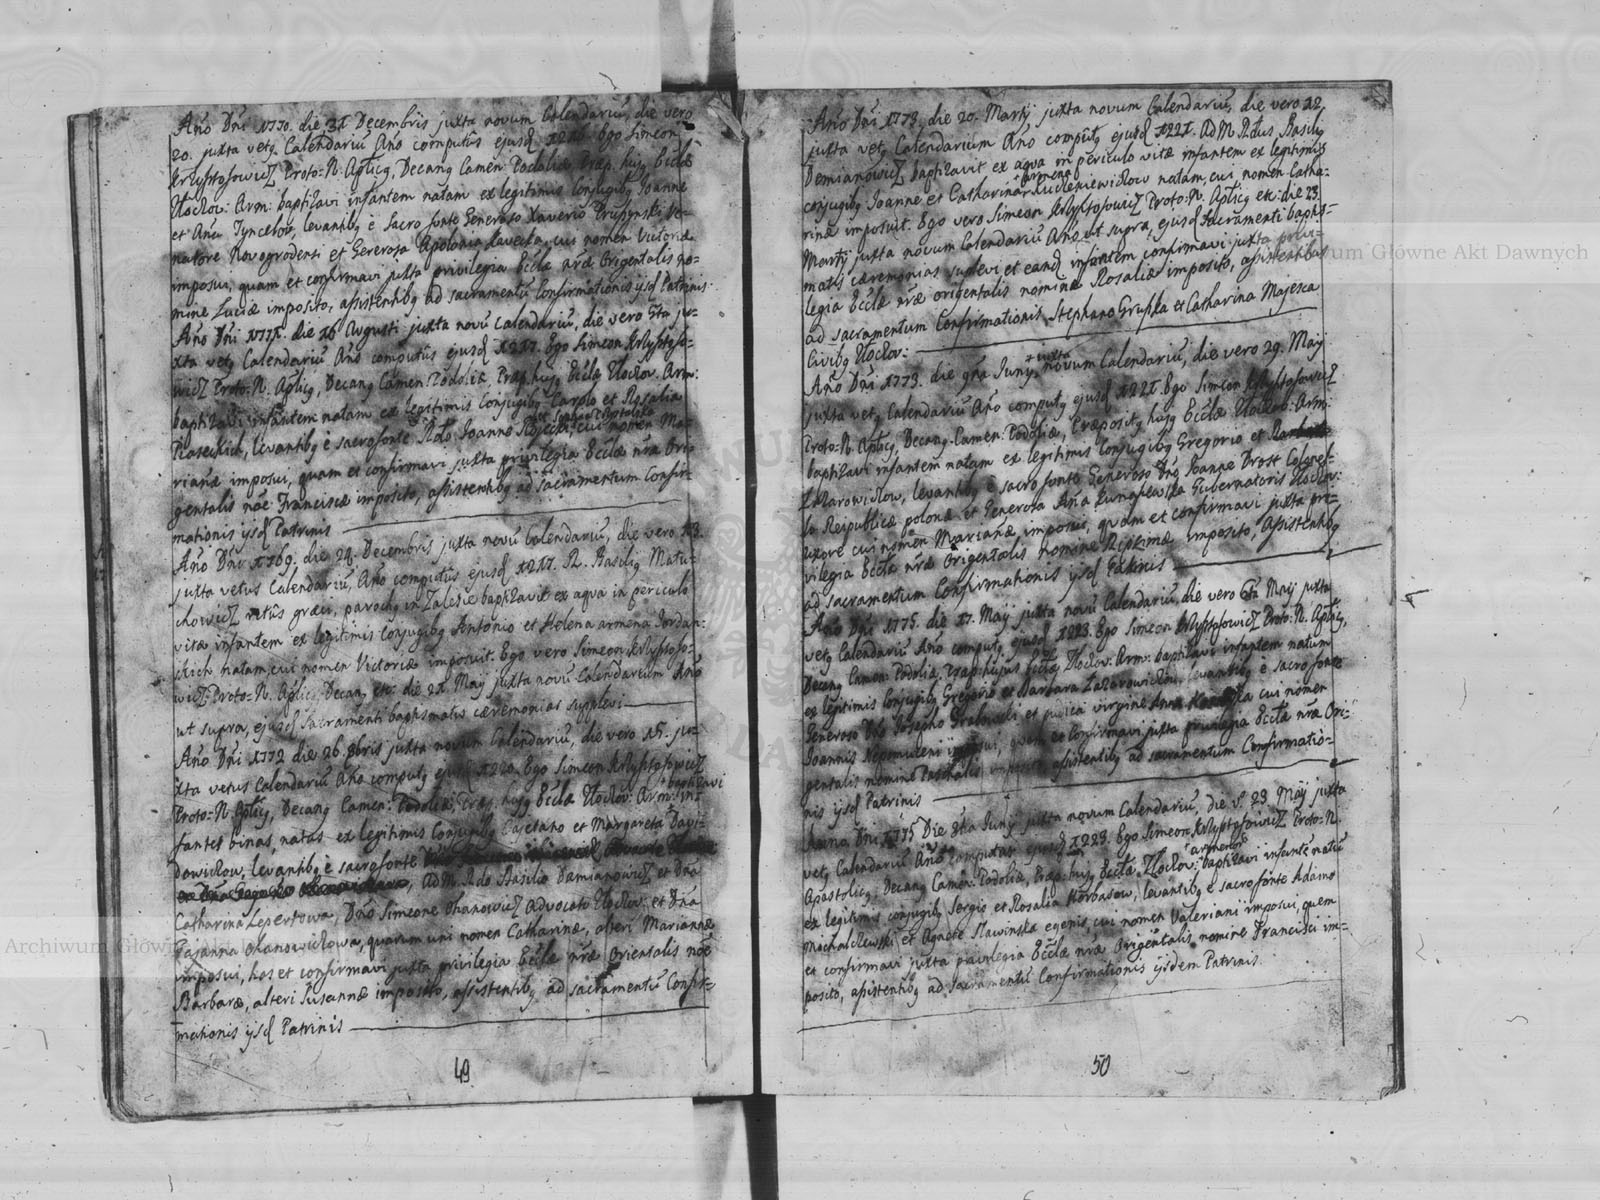 Año Dni 1770. die 31 Decembris juxta novum Calendariũ, die vero
20. juxta vetq Calendariũ Año computûs ejusd 1216. Ego Simeon
Krzysztofowicz Proto=N. Aplicq, Decanq Camen: Podoliæ Præp. hujq Ecclæ
Złoczov: Arm: baptizavi infantem natam ex legitimis Conjugibq Joanne
et Anna Tyncerow, levantibq è Sacro fonte Generoso Xaverio Prusynski Se-
natore Novogrodensi et Generosa Apolonia cui nomen Victoriæ
imposui, quam et confirmavi juxta privilegia Ecclæ nræ Origentalis no-
mine Luciæ imposito, assistentibq ad sacramentũ Confirmationis ijsd Patrinis
Año Dni 1771. die 16 Augusti juxta novũ Calendariũ, die vero 5ta ju-
xta vetq Calendariũ Año computûs ejusd 1217. Ego Simeon Krzysztofo-
wicz Proto=N. Aplicq, Decanq Camen: Podoliæ, Præp. hujq Ecclæ Złoczov. Arm:
baptizavi infantem natam ex legitimis Conjugibq Carolo et Rosalia
Piaseckich, levantibq è sacro fonte Joanne cui nomen Ma-
riannæ imposui, quam et confirmavi juxta privilegia Ecclæ nræ Ori-
gentalis nõe Franciscæ imposito, assistentibq ad sacramentum Confir-
mationis ijsd Patrinis
Año Dni 1769. die 24. Decembris juxta novũ Calendariũ, die vero 13.
juxta vetus Calendariũ, Año computûs ejusd 1217. R. Basiliq Matu-
chowicz ritûs græci, parochq in Zalesie baptizavit ex aqua in periculo
vitæ infantem ex legitimis Conjugibq Antonio et Helena armena
natam, cui nomen Victoriæ imposuit. Ego vero Simeon Krzysztofo-
wicz Proto=N. Aplicq Decanq etc: die 21 Maij juxta novũ Calendarium Año
ut supra, ejusd Sacramenti baptismatis cæremonias supplevi
Año Dni 1772 die 26 8bris juxta novum Calendariũ, die vero 15. ju-
xta vetus Calendariũ Año computq ejusd 1220. Ego Simeon Krzysztofowicz
Proto=N. Aplicq, Decanq Camen: Podoliæ, Præp. hujq Ecclæ Złoczov: Arm: baptizavi in-
fantes binas, natas ex legitimis Conjugibq Cajetano et Margareta Dawi-
dowiczow, levantibq è sacro fonte
AdM R.do Basilio Damianowicz et Dña
Catharina Lepertowa, Dño Simeone Ohanowicz Advocato Złoczov: et Dña
Zuzanna Ohanowiczowa, quarum uni nomen Catharinæ, alteri Mariannæ
imposui, has et confirmavi juxta privilegia Ecclæ nræ Orientalis nõe
Barbaræ, alteri Susannæ imposito, assistentibq ad sacramentũ Confir-
mationis ijsd Patrinis
49
Año Dni 1773. die 20. Martij juxta novum Calendariũ, die vero 12.
juxta vetq Calendarium Año computq ejusd 1221. AdM R.dus Basiliq
Demianowicz baptizavit ex aqua in periculo vitæ infantem ex legitimis
conjugibq Joanne et Catharina armenae natam, cui nomen Catha-
rinæ imposuit. Ego vero Simeon Krzysztofowicz Proto=N. Aplicq etc: die 23.
Martij juxta novum Calendariũ Año ut supra, ejusd Sacramenti baptis-
matis cæremonias suplevi et eand infantem confirmavi juxta privi-
legia Ecclæ nræ origentalis nomine Rosaliæ imposito, assistentibus
ad sacramentum Confirmationis Stephano Gruszka et Catharina Majeska
Civibq Złoczov:
Año Dni 1773. die 9na Junij juxta novum Calendariũ, die vero 29. Maij
juxta vetq Calendariũ Año computq ejusd 1221. Ego Simeon Krzysztofowicz
Proto=N. Aplicq, Decanq Camen: Podoliæ, Præpositq hujq Ecclæ Złoczov: Arm:
baptizavi infantem natam ex legitimis Conjugibq Gregorio et
Łazarowiczow, levantibq è sacro fonte Generoso Dno Joanne Drost Colonel-
lo Reipublicæ polonæ et Generosa Anna Gubernatoris Złoczov:
uxore cui nomen Mariannæ imposui, quam et confirmavi juxta pri-
vilegia Ecclæ nræ Origentalis nomine imposito, assistentibq
ad sacramentum Confirmationis ijsd Patrinis
Año Dni 1775. die 17. Maij juxta novũ Calendariũ, die vero 6ta Maij juxta
vetq Calendariũ Año computq ejusd 1223. Ego Simeon Krzysztofowicz Proto=N. Aplicq,
Decanq Camen: Podoliæ, Præp. hujus Ecclæ Złoczov: Arm: baptizavi infantem natum
ex legitimis Conjugibq Gregorio et Barbara Łazarowiczow, levantibq è sacro fonte
Generoso Dño Josepho Grabowski et pudica virgine Anna cui nomen
Joannis Nepomuceni imposui, quem et confirmavi juxta privilegia Ecclæ nræ Ori-
gentalis nomine Paschalis imposito assistentibq ad sacramentum Confirmatio-
nis ijsd Patrinis
Anno Dni 1775 Die 3tia Junij juxta novum Calendariũ, die v. 23 Maij juxta
vetq Calendariũ Año computus ejusd 1223. Ego Simeon Krzysztofowicz Proto=N.
Apostolicq, Decanq Camen: Podoliæ, Præp: hujq Ecclæ Złoczov: armenor baptizavi infantẽ natũ
ex legitimis conjugibq Sergio et Rosalia Norbasow, levantibq è sacro fonte Adamo
Mochalczewski et Agnete Sławinska egenis, cui nomen Valeriani imposui, quem
et confirmavi juxta privilegia Ecclæ nræ Origentalis nomine Francisci im-
posito, assistentibq ad sacramentũ Confirmationis ijsdem Patrinis
50
Archiwum Główne Akt Dawnych